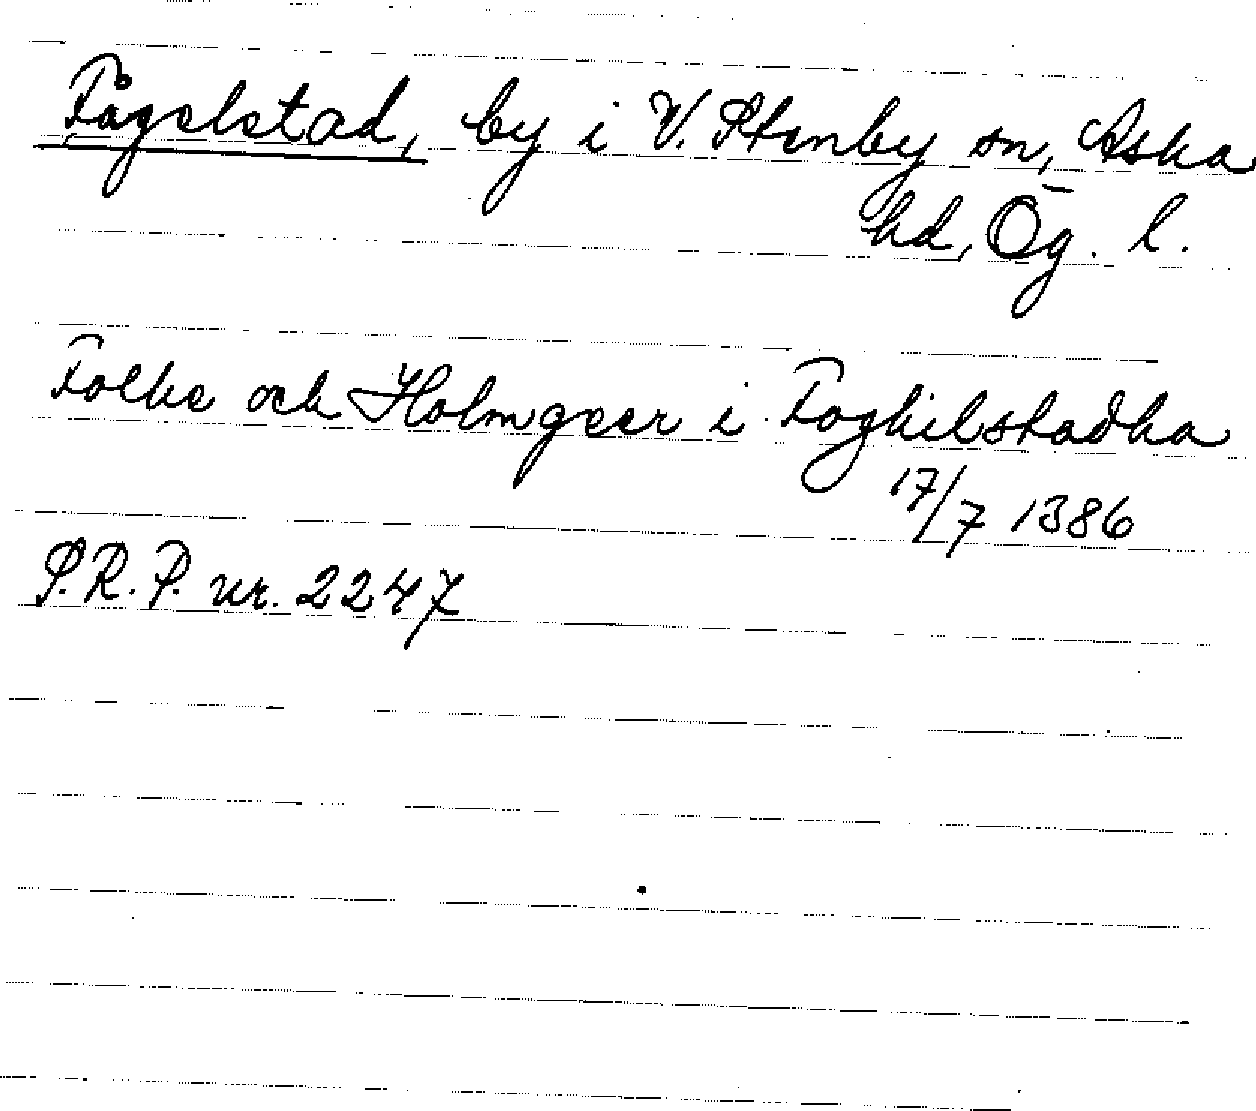 Fågelstad, by i V. Stenby sn, Aska
hd, Ög. l.
Folke och Holmgeer i Foghilstadha
17/7 1386
S.R.P. nr. 2247